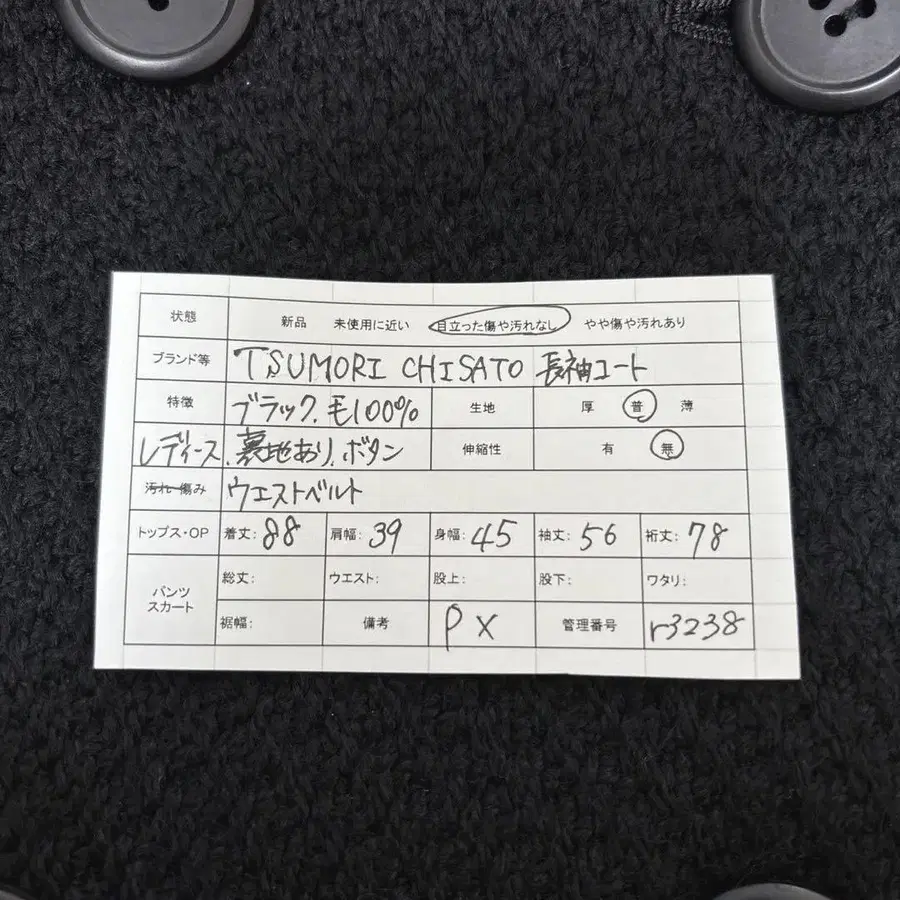 状態 新品 未使用に近い 目立った傷や汚れなし やや傷や汚れあり
ブランド等 TSUMORI CHISATO 長袖コート
特徴 ブラック、毛100% 生地 厚 普 薄
レディース、裏地あり、ボタン 伸縮性 有 無
汚れ・傷み ウエストベルト
トップス・OP 着丈: 88 肩幅: 39 身幅: 45 袖丈: 56 裄丈: 78
パンツ スカート 総丈: ウエスト: 股上: 股下: ワタリ:
裾幅: 備考 PX 管理番号 r3238